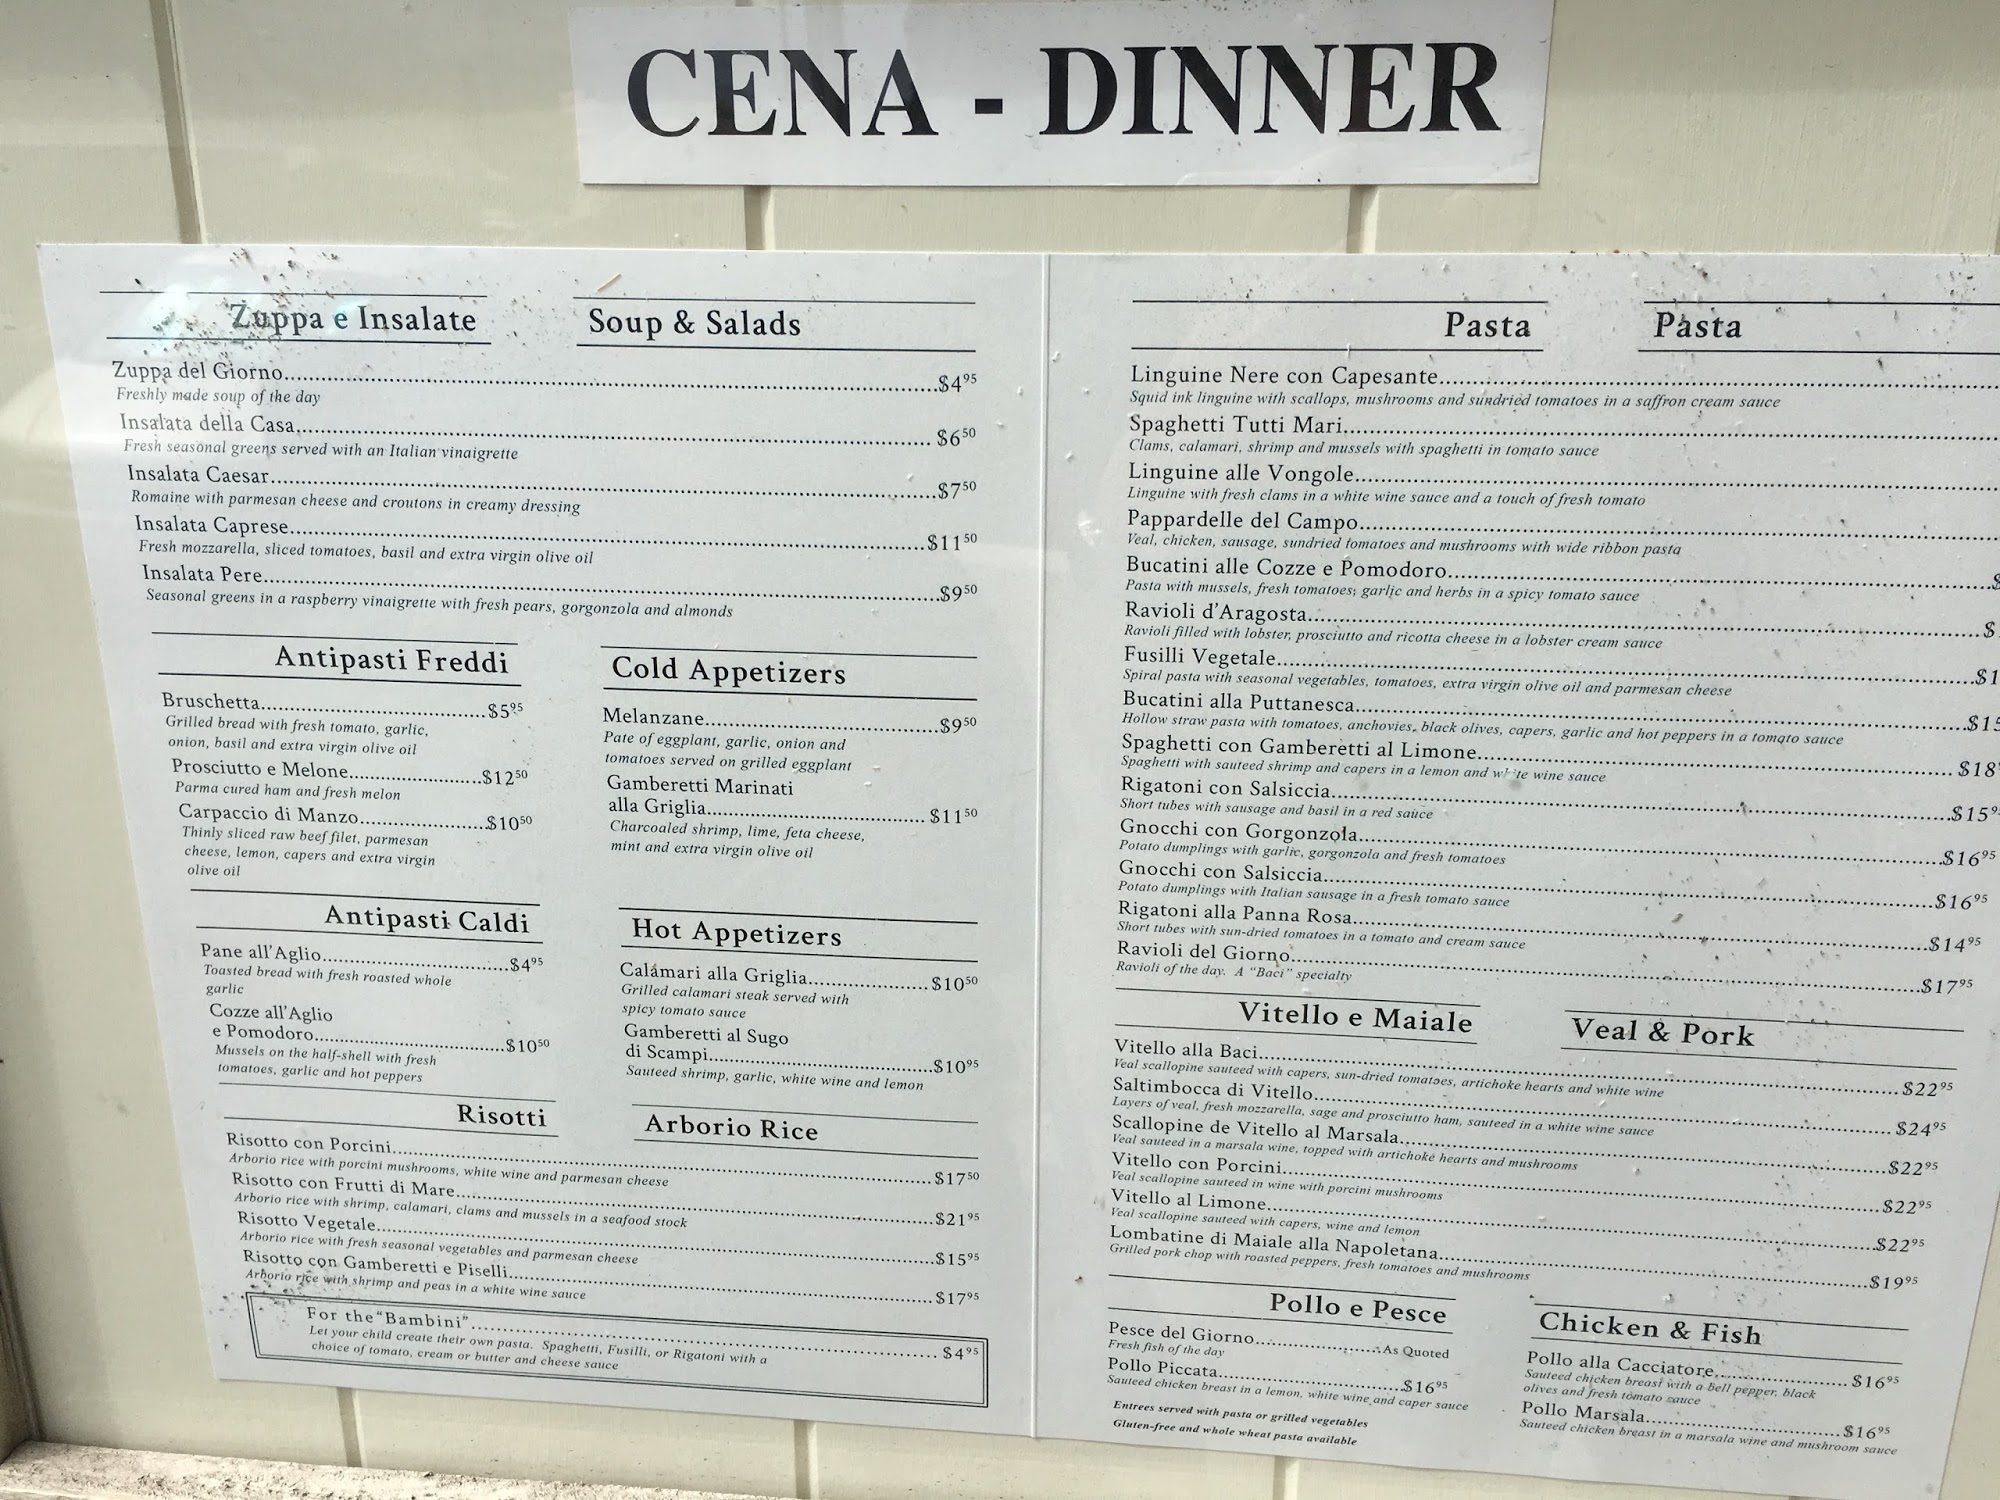 CENA - DINNER
Zuppa e Insalate
Soup & Salads
Zuppa del Giorno....$4.95
Freshly made soup of the day
Insalata della Casa....$6.50
Fresh seasonal greens served with an Italian vinaigrette
Insalata Caesar....$7.50
Romaine with parmesan cheese and croutons in creamy dressing
Insalata Caprese....$11.50
Fresh mozzarella, sliced tomatoes, basil and extra virgin olive oil
Insalata Pere....$9.50
Seasonal greens in a raspberry vinaigrette with fresh pears, gorgonzola and almonds
Antipasti Freddi
Cold Appetizers
Bruschetta....$5.95
Grilled bread with fresh tomato, garlic,
onion, basil and extra virgin olive oil
Prosciutto e Melone....$12.50
Parma cured ham and fresh melon
Carpaccio di Manzo....$10.50
Thinly sliced raw beef filet, parmesan
cheese, lemon, capers and extra virgin
olive oil
Melanzane....$9.50
Pate of eggplant, garlic, onion and
tomatoes served on grilled eggplant
Gamberetti Marinati
alla Griglia....$11.50
Charcoaled shrimp, lime, feta cheese,
mint and extra virgin olive oil
Antipasti Caldi
Hot Appetizers
Pane all'Aglio....$4.95
Toasted bread with fresh roasted whole
garlic
Cozze all'Aglio
e Pomodoro....$10.50
Mussels on the half-shell with fresh
tomatoes, garlic and hot peppers
Calamari alla Griglia....$10.50
Grilled calamari steak served with
spicy tomato sauce
Gamberetti al Sugo
di Scampi....$10.95
Sauteed shrimp, garlic, white wine and lemon
Risotti
Arborio Rice
Risotto con Porcini....$17.50
Arborio rice with porcini mushrooms, white wine and parmesan cheese
Risotto con Frutti di Mare....$21.95
Arborio rice with shrimp, calamari, clams and mussels in a seafood stock
Risotto Vegetale....$15.95
Arborio rice with fresh seasonal vegetables and parmesan cheese
Risotto con Gamberetti e Piselli....$17.95
Arborio rice with shrimp and peas in a white wine sauce
For the "Bambini"....$4.95
Let your child create their own pasta. Spaghetti, Fusilli, or Rigatoni with a
choice of tomato, cream or butter and cheese sauce
Pasta
Pasta
Linguine Nere con Capesante....
Squid ink linguine with scallops, mushrooms and sundried tomatoes in a saffron cream sauce
Spaghetti Tutti Mari....
Clams, calamari, shrimp and mussels with spaghetti in tomato sauce
Linguine alle Vongole....
Linguine with fresh clams in a white wine sauce and a touch of fresh tomato
Pappardelle del Campo....
Veal, chicken, sausage, sundried tomatoes and mushrooms with wide ribbon pasta
Bucatini alle Cozze e Pomodoro....$
Pasta with mussels, fresh tomatoes, garlic and herbs in a spicy tomato sauce
Ravioli d'Aragosta....$
Ravioli filled with lobster, prosciutto and ricotta cheese in a lobster cream sauce
Fusilli Vegetale....$1
Spiral pasta with seasonal vegetables, tomatoes, extra virgin olive oil and parmesan cheese
Bucatini alla Puttanesca....$15
Hollow straw pasta with tomatoes, anchovies, black olives, capers, garlic and hot peppers in a tomato sauce
Spaghetti con Gamberetti al Limone....$18
Spaghetti with sauteed shrimp and capers in a lemon and white wine sauce
Rigatoni con Salsiccia....$15.9
Short tubes with sausage and basil in a red sauce
Gnocchi con Gorgonzola....$16.95
Potato dumplings with garlic, gorgonzola and fresh tomatoes
Gnocchi con Salsiccia....$16.95
Potato dumplings with Italian sausage in a fresh tomato sauce
Rigatoni alla Panna Rosa....$14.95
Short tubes with sun-dried tomatoes in a tomato and cream sauce
Ravioli del Giorno....$17.95
Ravioli of the day. A "Baci" specialty
Vitello e Maiale
Veal & Pork
Vitello alla Baci....$22.95
Veal scallopine sauteed with capers, sun-dried tomatoes, artichoke hearts and white wine
Saltimbocca di Vitello....$24.95
Layers of veal, fresh mozzarella, sage and prosciutto ham, sauteed in a white wine sauce
Scallopine de Vitello al Marsala....$22.95
Veal sauteed in a marsala wine, topped with artichoke hearts and mushrooms
Vitello con Porcini....$22.95
Veal scallopine sauteed in wine with porcini mushrooms
Vitello al Limone....$22.95
Veal scallopine sauteed with capers, wine and lemon
Lombatine di Maiale alla Napoletana....$19.95
Grilled pork chop with roasted peppers, fresh tomatoes and mushrooms
Pollo e Pesce
Chicken & Fish
Pesce del Giorno....As Quoted
Fresh fish of the day
Pollo Piccata....$16.95
Sauteed chicken breast in a lemon, white wine and caper sauce
Entrees served with pasta or grilled vegetables
Gluten-free and whole wheat pasta available
Pollo alla Cacciatore....$16.95
Sauteed chicken breast with a bell pepper, black
olives and fresh tomato sauce
Pollo Marsala....$16.95
Sauteed chicken breast in a marsala wine and mushroom sauce